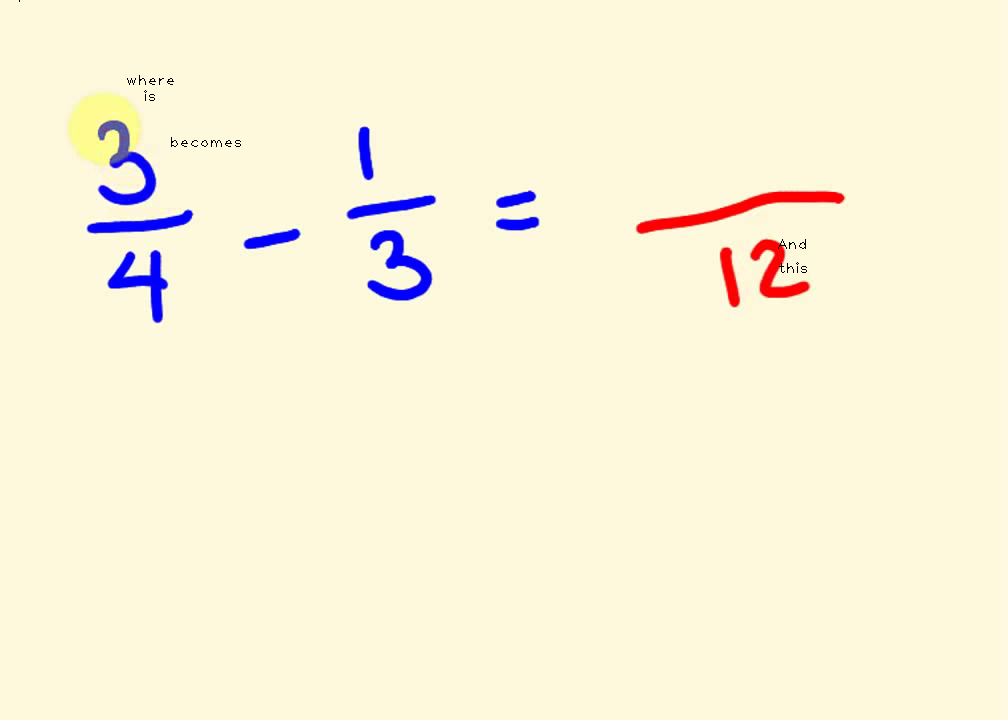 where
is
becomes
3/4 - 1/3 = /12
And
this